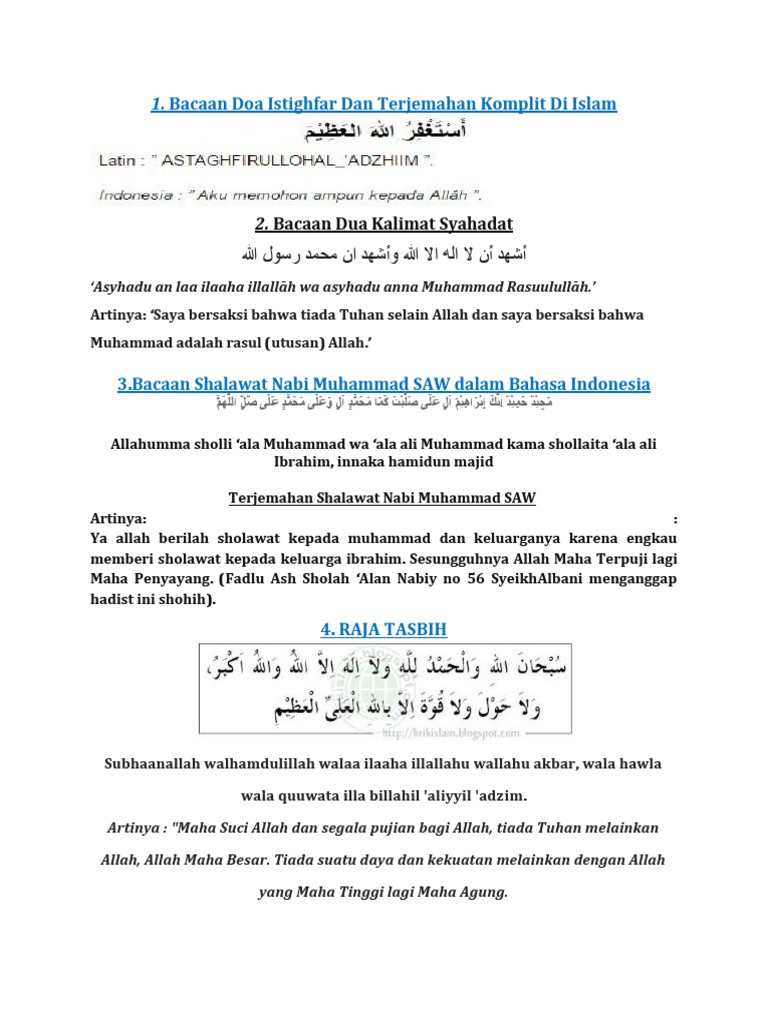 1. Bacaan Doa Istighfar Dan Terjemahan Komplit Di Islam
أَسْتَغْفِرُ اللهَ الْعَظِيْمَ
Latin : " ASTAGHFIRULLOHAL_'ADZHIIM ".
Indonesia : " Aku memohon ampun kepada Allâh ".
2. Bacaan Dua Kalimat Syahadat
أشهد أن لا اله الا الله وأشهد ان محمد رسول الله
‘Asyhadu an laa ilaaha illallāh wa asyhadu anna Muhammad Rasuulullāh.’
Artinya: ‘Saya bersaksi bahwa tiada Tuhan selain Allah dan saya bersaksi bahwa
Muhammad adalah rasul (utusan) Allah.’
3.Bacaan Shalawat Nabi Muhammad SAW dalam Bahasa Indonesia
مَجِيْدٌ حَمِيْدٌ اِنَّكَ اِبْرَاهِيْمَ آلِ عَلَى صَلَّيْتَ كَمَا مُحَمَّدٍ آلِ وَعَلَى مُحَمَّدٍ عَلَى صَلِّ اللَّهُمَّ
Allahumma sholli ‘ala Muhammad wa ‘ala ali Muhammad kama shollaita ‘ala ali
Ibrahim, innaka hamidun majid
Terjemahan Shalawat Nabi Muhammad SAW
Artinya: :
Ya allah berilah sholawat kepada muhammad dan keluarganya karena engkau
memberi sholawat kepada keluarga ibrahim. Sesungguhnya Allah Maha Terpuji lagi
Maha Penyayang. (Fadlu Ash Sholah ‘Alan Nabiy no 56 SyeikhAlbani menganggap
hadist ini shohih).
4. RAJA TASBIH
سُبْحَانَ اللهِ وَالْحَمْدُ لِلَّهِ وَلَآ اِلٰهَ اِلاَّ اللهُ وَاللهُ اَكْبَرُ،
وَلاَ حَوْلَ وَلاَ قُوَّةَ اِلاَّ بِاللهِ الْعَلِيِّ الْعَظِيْمِ
http://lirikislam.blogspot.com
Subhaanallah walhamdulillah walaa ilaaha illallahu wallahu akbar, wala hawla
wala quuwata illa billahil 'aliyyil 'adzim.
Artinya : "Maha Suci Allah dan segala pujian bagi Allah, tiada Tuhan melainkan
Allah, Allah Maha Besar. Tiada suatu daya dan kekuatan melainkan dengan Allah
yang Maha Tinggi lagi Maha Agung.